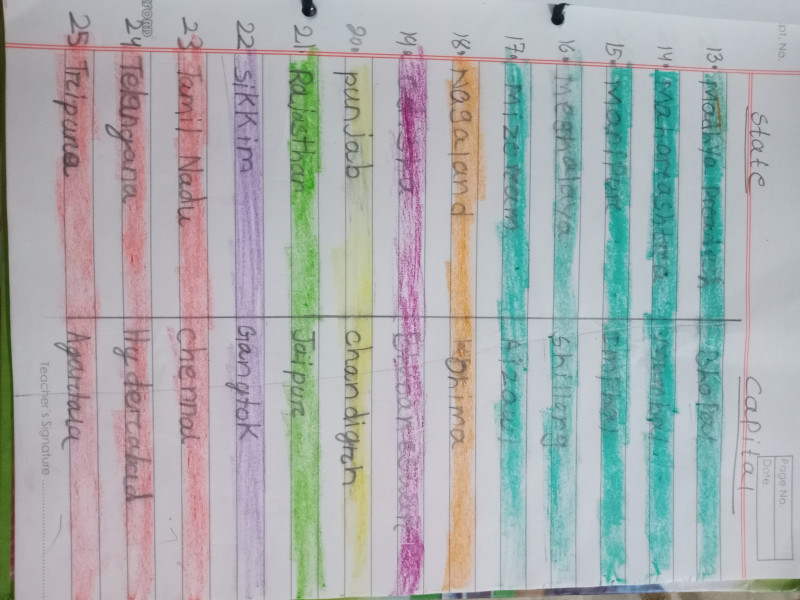 pt. No.
Page No.
Date.
State Capital
13. Madhya Pradesh Bhopal
14. Maharashtra Mumbai
15. Manipur Imphal
16. Meghalaya Shillong
17. Mizoram Aizawl
18. Nagaland Kohima
19.
20. punjab chandigrah
21. Rajasthan Jaipur
22 sikkim Gangtok
23. Tamil Nadu chennai
24 Telangana Hydercabad
25 Tripura Agartala
Teacher's Signature